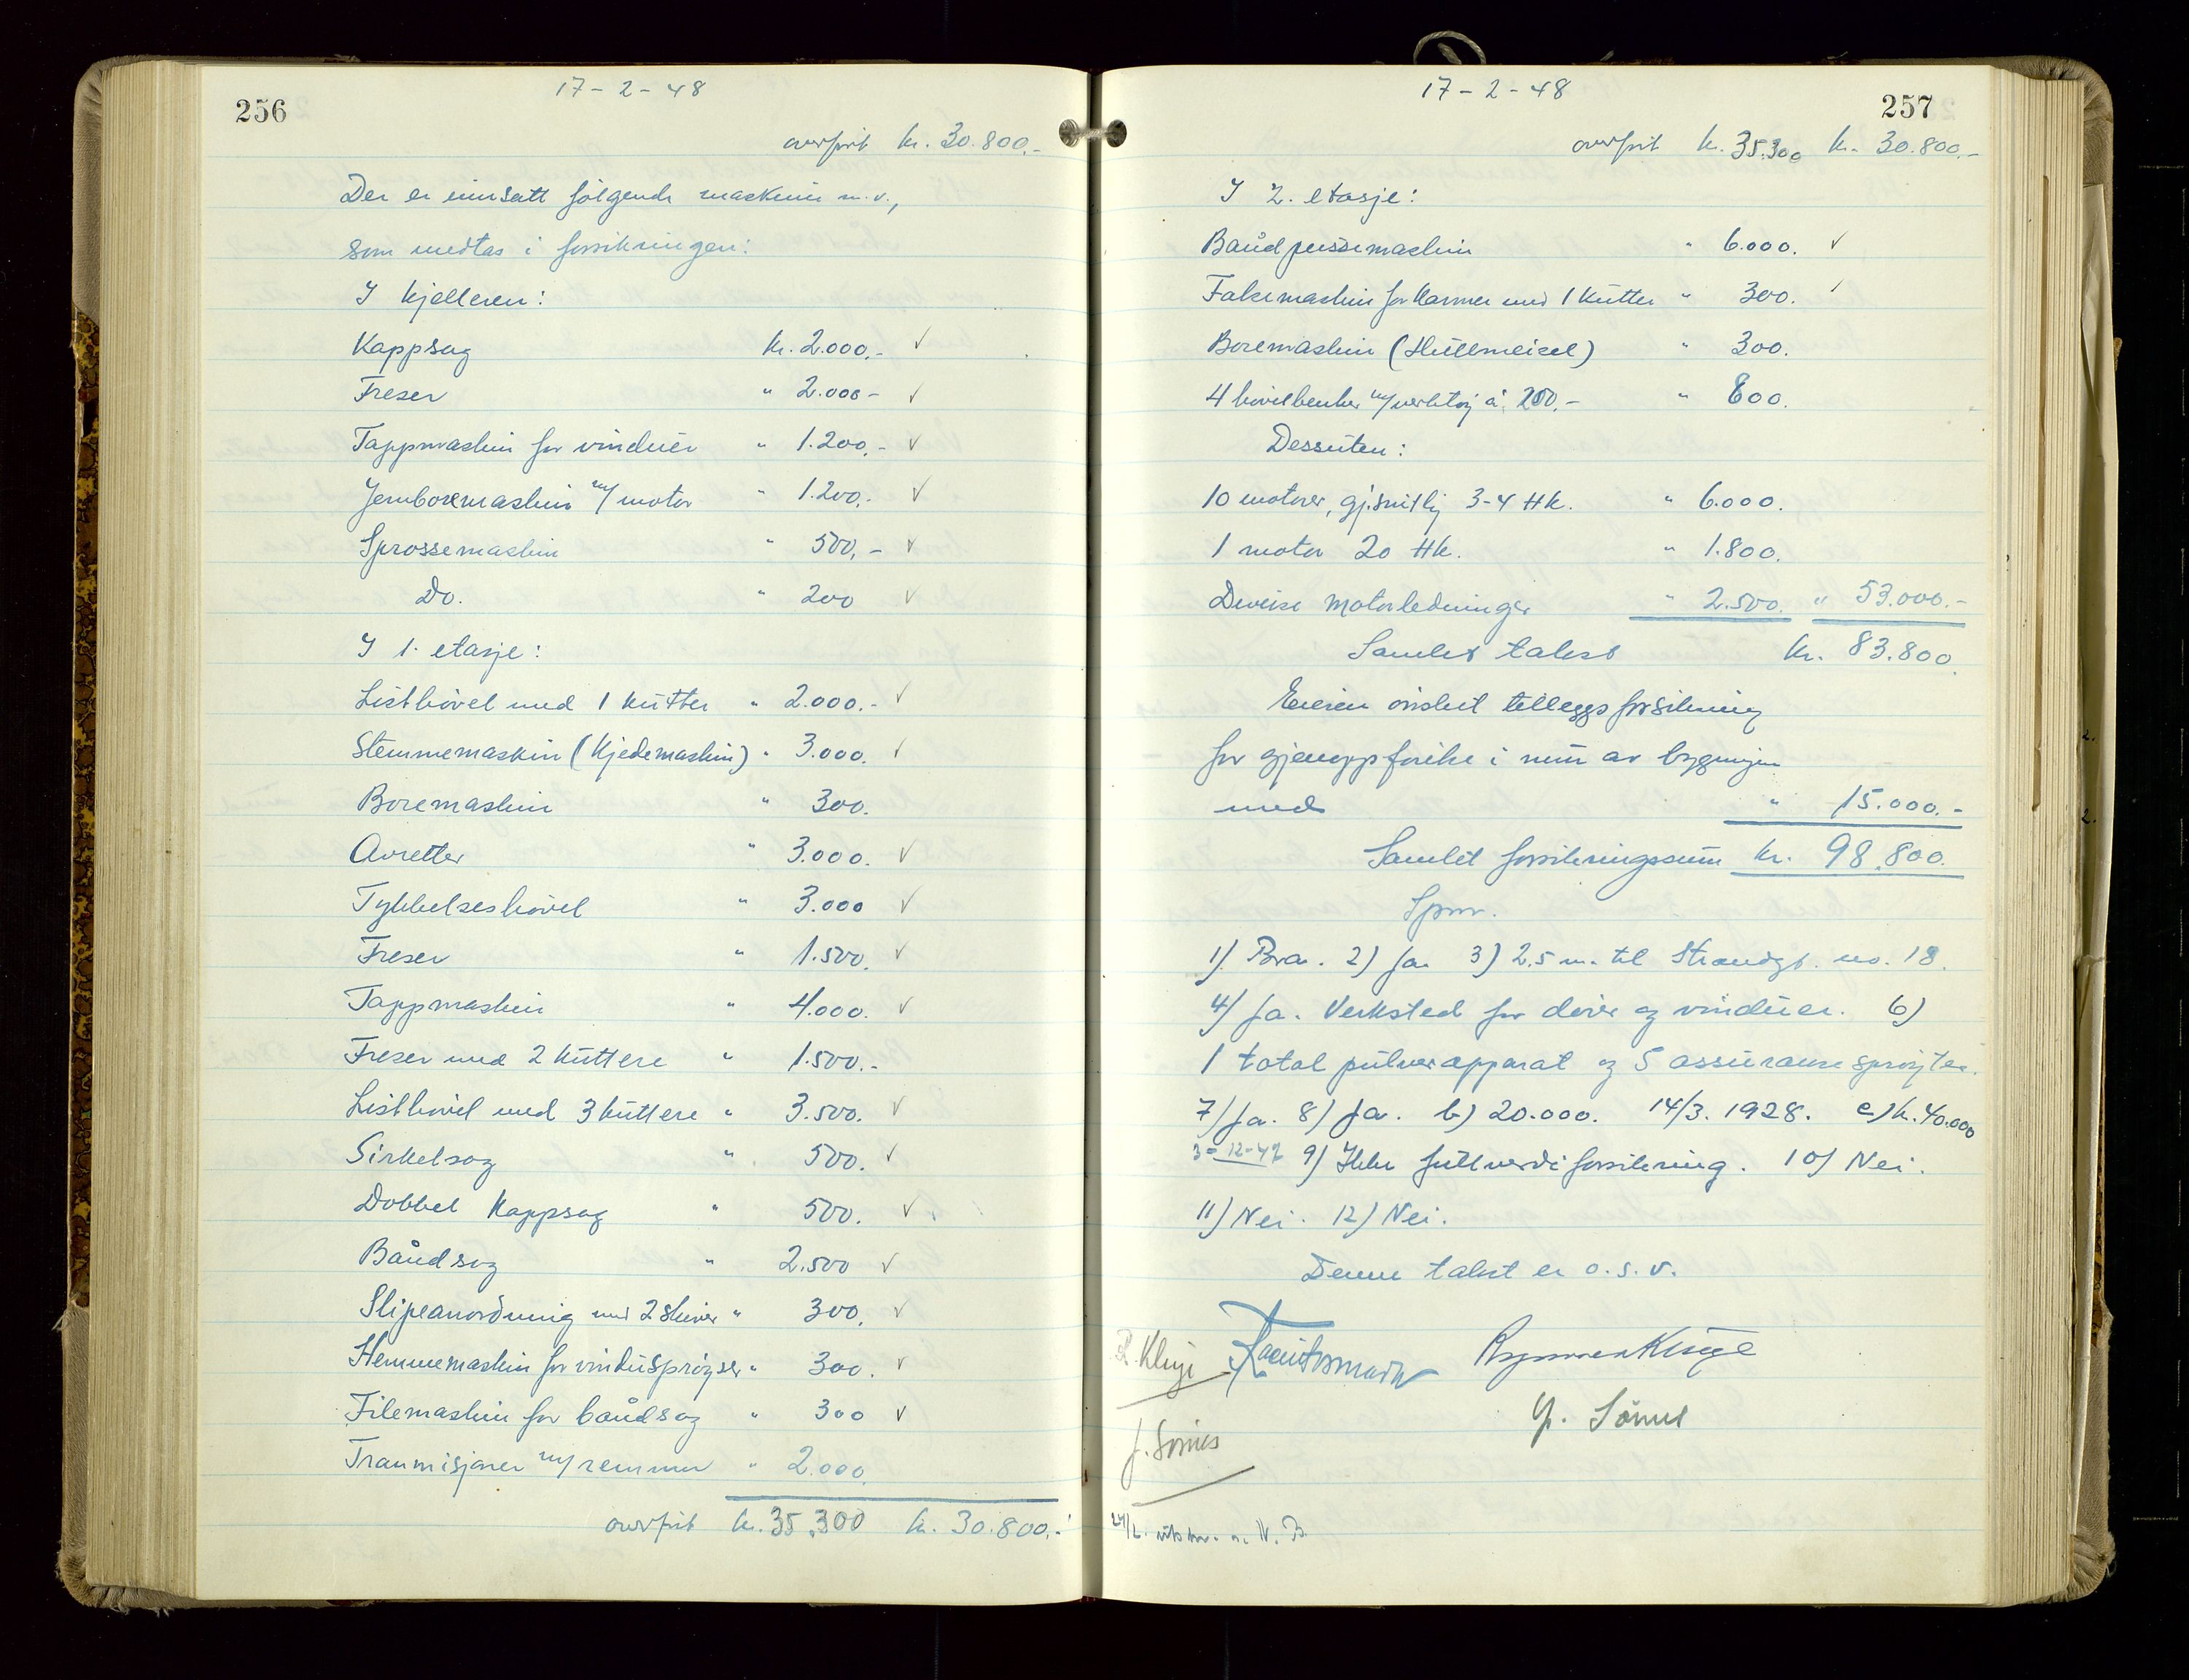 256
17-2-48
overført kr. 30.800.-
Der er innsatt følgende maskiner m.v.,
som medtas i forsikringen:
I kjelleren:
Kappsag kr. 2.000,- ✓
Freser " 2.000- ✓
Tappmaskin for vinduer " 1.200,- ✓
Jernboremaskin m/ motor " 1.200.- ✓
Sprossemaskin " 500,- ✓
Do. " 200 ✓
I 1. etasje:
Listhøvel med 1 kutter " 2.000.- ✓
Stemmemaskin (Kjedemaskin) " 3.000. ✓
Boremaskin " 300.
Avretter " 3.000. ✓
Tykkelseshøvel " 3.000 ✓
Freser " 1.500. ✓
Tappmaskin " 4.000. ✓
Freser med 2 kuttere " 1.500.-
Listhøvel med 3 kuttere " 3.500. ✓
Sirkelsag " 500. ✓
Dobbel Kappsag " 500. ✓
Båndsag " 2.500 ✓
Slipeanordning med 2 skiver " 300. ✓
for vindusprøyser " 300. ✓
Filemaskin for båndsag " 300 ✓
Tranmisjoner m/ remmer " 2.000.
overført kr. 35.300 kr. 30.800.-
257
17-2-48
overført kr. 35.300 kr. 30.800.-
I 2. etasje:
Båndpussemaskin " 6.000. ✓
Falsemaskin for karmer med 1 kutter " 300. ✓
Boremaskin (Hullmeisel) " 300.
4 høvelbenker m/verktøj à 200.- " 800.
Dessuten:
10 motorer, gj.snitlig 3-4 HK. " 6.000.
1 motor 20 HK. " 1.800.
Diverse motorledninger " 2.500. " 53.000.-
Samlet takst kr. 83.800
Eieren ønsket tilleggsforsikring
for gjenoppførelse i mur av bygningen
med " 15.000.-
Samlet forsikringssum kr. 98.800.
Spm.
1) Bra. 2) Ja 3) 2.5 m. til Strandgt. no. 18.
4) Ja. Verksted for dører og vinduer. 6)
1 total pulverapparat og 5 assuransesprøjter.
7) Ja. 8) Ja. b) 20.000. 14/3. 1928. c) k. 40.000
3-12-47 9) Ikke fullverdiforsikring. 10) Nei.
11) Nei. 12) Nei.
Denne takst er o.s.v.
R. Kluge
J. Sørnes